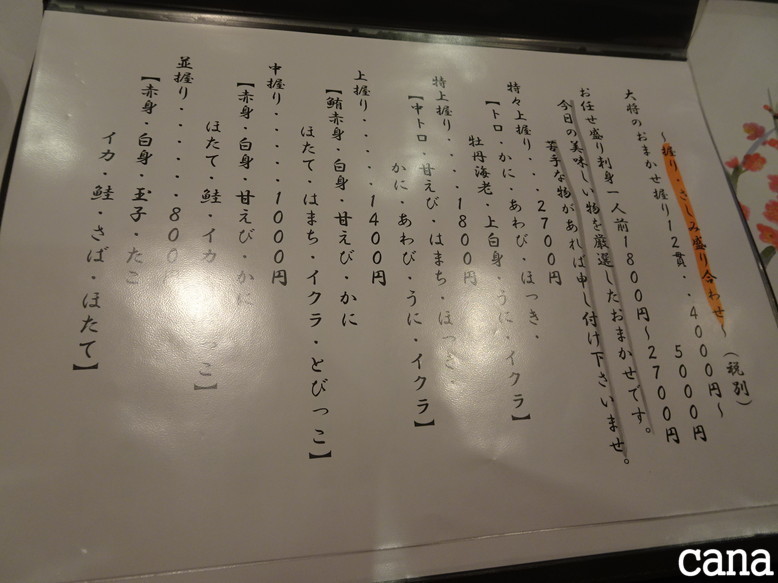 ～握り・さしみ盛り合わせ～（税別）
大将のおまかせ握り12貫・・4000円～
5000円
お任せ盛り刺身一人前1800円～2700円
今日の美味しい物を厳選したおまかせです。
苦手な物があれば申し付け下さいませ。
特々上握り・・・・・2700円
【トロ・かに・あわび・ほっき・
牡丹海老・上白身・うに・イクラ】
特上握り・・・・・・1800円
【中トロ・甘えび・はまち・ほっき・
かに・あわび・うに・イクラ】
上握り・・・・・・・1400円
【鮪赤身・白身・甘えび・かに
ほたて・はまち・イクラ・とびっこ】
中握り・・・・・・1000円
【赤身・白身・甘えび・かに
ほたて・鮭・イカ っこ】
並握り・・・・・・・800円
【赤身・白身 玉子・たこ
イカ・鮭・さば・ほたて】
cana